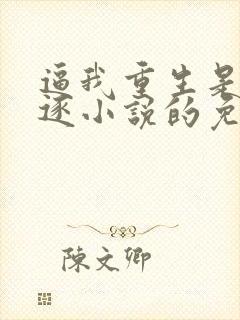 逼我重生是
逐小説的免
陳文卿